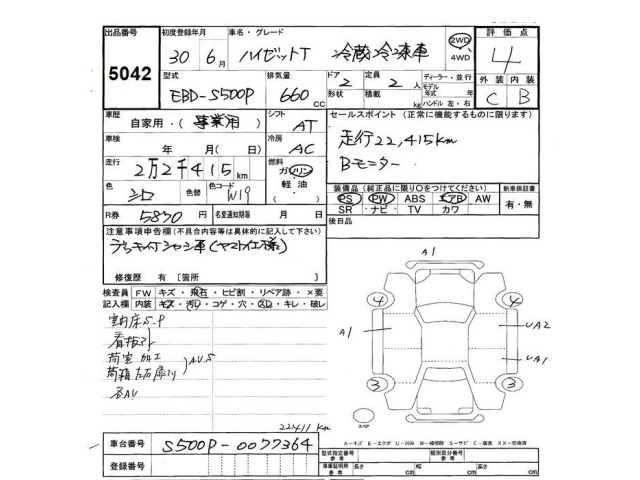 出品番号 初度登録年月 車名・グレード 2WD 4WD 評価点
5042 30年 6月 ハイゼットT 冷蔵冷凍車 4
型式 排気量 ドア 形状 定員 積載 ディーラー・並行 モデル 年式 年 ハンドル 左・右 外装 内装
EBD-S500P 660cc 2 2人 kg C B
車歴 自家用・(事業用) シフト AT セールスポイント (正常に機能するものに限ります)
車検 年 月(日) 冷房 AC 走行22,415km
走行 2万2千415km 燃料 ガソリン 軽油・ Bモニター
色 シロ 色替 色コード W19 装備品(純正品に限り○をつけてください) 新車保証書
PS PW ABS エアB AW 有・無
SR ナビ TV カワ
R券 5830円 名変期限 月 日 後日品
注意事項申告欄(不具合内容等は具体的に記入して下さい)
修復歴 有 [箇所 ]
検査員 記入欄 FW キズ・飛石・ヒビ割・リペア跡・×要
内装 キズ・汚レ・コゲ・穴・スレ・キレ・破レ
看板外
荷室 加工
A1
4 4
A1 UA2
UA1
3 3
スペア
22411 km
A-キズ E-エクボ U-凹み W-補修跡 S-サビ C-腐食 XX-交換済
車台番号 S500P-0077364
登録番号
型式指定番号 参考 類別区分番号 参考
車庫証明用 参考 長さ cm 幅 cm 高さ cm